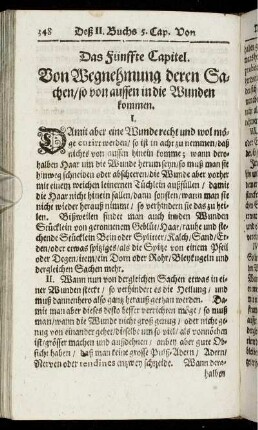 348 Deß II. Buchs 5. Cap. Von
Das Fünffte Capitel.
Von Wegnehmung deren Sa-
chen/so von aussen in die Wunden
kommen.
I.
DAmit aber eine Wunde recht und wol mö-
ge curirt werden/ so ist in acht zu nemen/daß
nichts von aussen hinein komme; wann dero-
halben Haar um die Wunde herum seyn/so muß man sie
hinweg schneiden oder abscheeren/die Wunde aber vorher
mit einem weichen leinernen Tüchlein außfüllen/ damit
die Haar nicht hinein fallen/dann sonsten/wann man sie
nicht wieder herauß nimmt/ so verhindern sie das zu hei-
len. Bißweilen findet man auch in den Wunden
Stücklein von geronnenem Geblüt/Haar/rauhe und ste-
chende Stücklein Bein oder Splitter/Kalch/Sand/Er-
den/oder etwas spitziges/als die Spitz von einem Pfeil
oder Degen/item/ein Dorn oder Rohr/Bleykugeln und
dergleichen Sachen mehr.
II. Wann nun von dergleichen Sachen etwas in ei-
ner Wunden steckt/ so verhindert es die Heilung/ und
muß dannenhero also gantz herauß gethan werden. Da-
mit man aber dieses desto besser verrichten möge/ so muß
man/wann die Wunde nicht groß genug/ oder nicht ge-
nug von einander gehet/dieselbe um so viel/ als vonnöthen
ist/grösser machen und außdehnen/ anbey aber gute Ob-
sicht haben/ daß man keine grosse Pulß-Adern/ Adern/
Nerven oder tendines entzwey schneide. Wann dero-
halben